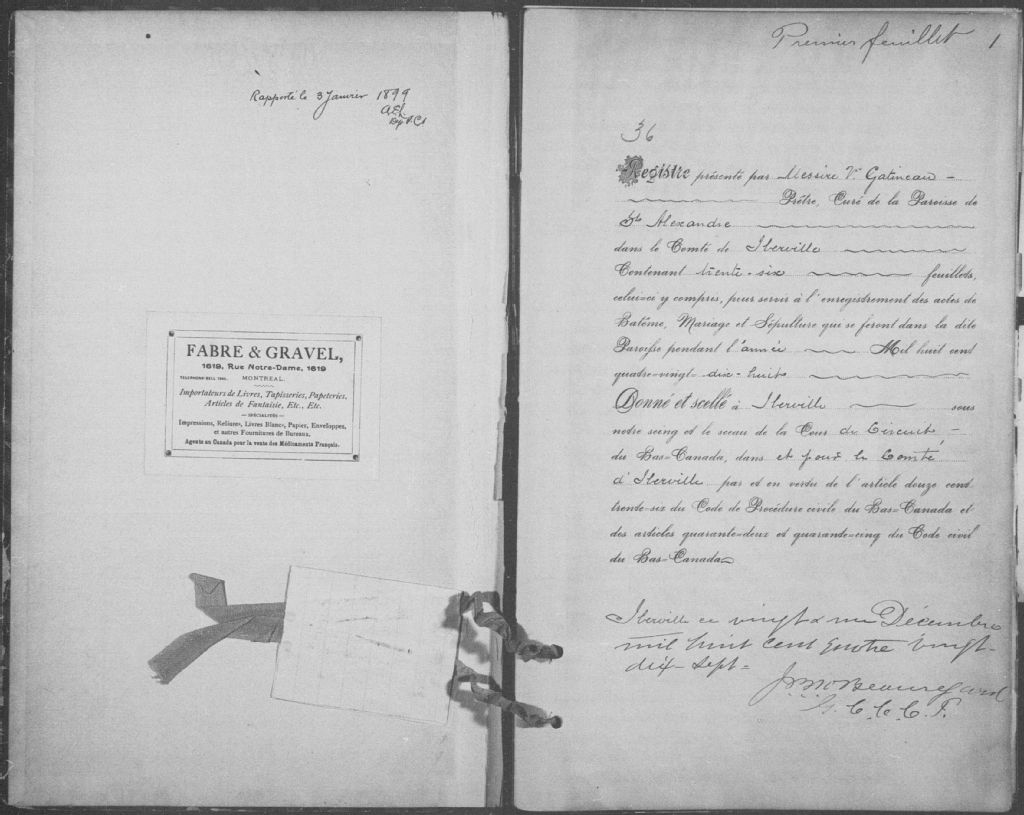 Rapporté le 3 Janvier 1899
FABRE & GRAVEL,
1619, Rue Notre-Dame, 1619
TELEPHONE BELL
MONTREAL.
Importateurs de Livres, Tapisseries, Papeteries,
Articles de Fantaisie, Etc., Etc.
— SPÉCIALITÉS —
Impressions, Reliures, Livres Blancs, Papier, Enveloppes,
et autres Fournitures de Bureaux.
Agents au Canada pour la vente des Médicaments Français.
Premier feuillet 1
36
Registre présenté par Messire V. Gatineau
Prêtre, Curé de la Paroisse de
St Alexandre
dans le Comté de Iberville
Contenant trente-six feuillets,
celui-ci y compris, pour servir à l'enregistrement des actes de
Batême, Mariage et Sépulture qui se feront dans la dite
Paroisse pendant l'année Mil huit cent
quatre-vingt dix-huit
Donné et scellé à Iberville sous
notre seing et le sceau de la Cour de Circuit,
du Bas-Canada, dans et pour le Comté
d'Iberville par et en vertu de l'article douze cent
trente-six du Code de Procédure civile du Bas-Canada et
des articles quarante-deux et quarante-cinq du Code civil
du Bas-Canada
Iberville ce vingt & un Décembre
mil huit cent quatre vingt-
dix-sept=
Beauregard
G. C. C. C. I.